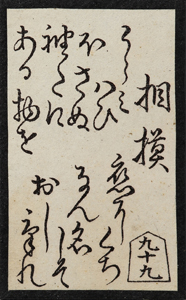 相摸
うらみわひ
ほさぬ
袖たに
ある物を
恋にくち
なん名こそ
おし
けれ
九十九